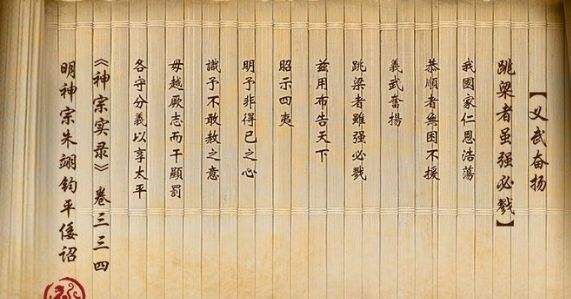 【义武奋扬
跳梁者虽强必戮】
我國家仁恩浩蕩
恭順者無困不援
義武奮揚
跳梁者雖强必戮
兹用布告天下
昭示四夷
明予非得已之心
識予不敢赦之意
毋越厥志而干顯罰
各守分義以享太平
《神宗实录》卷三三四
明神宗朱翊钧平倭诏